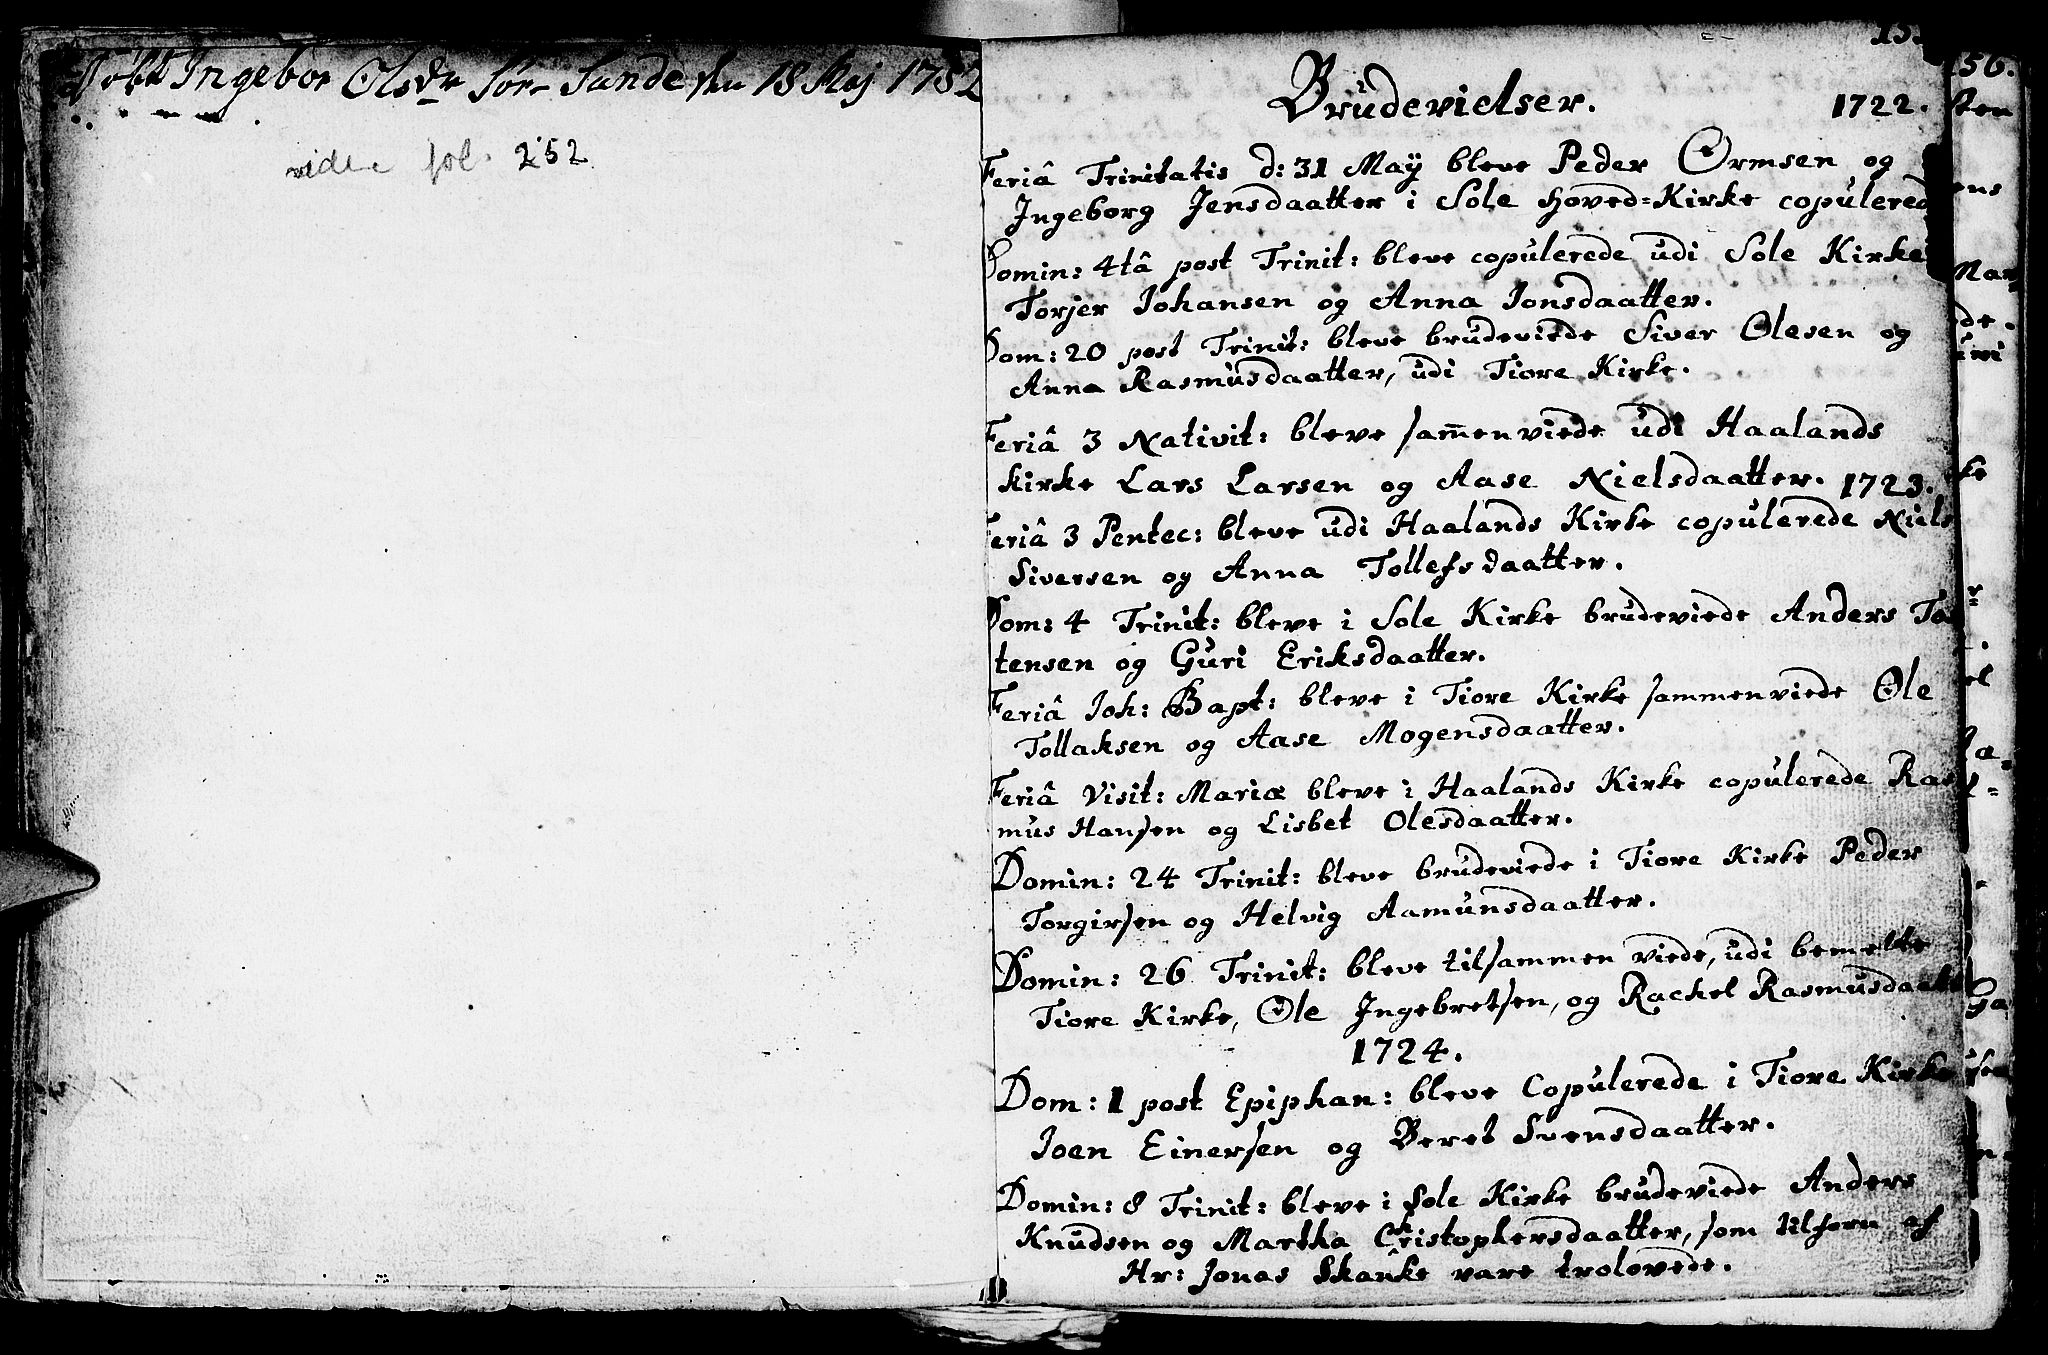 Døbt Ingebor Olsdr Sør-Sunde den 18 Maj 1752
vide fol. 252
Brudevielser. 1722.
Feriâ Trinitatis d: 31 Maÿ bleve Peder Ormsen og
Ingeborg Jensdaatter i Sole Hoved-Kirke copulered
Domin: 4tâ post Trinit: bleve copulerede udi Sole Kirke
Torjer Johansen og Anna Jonsdaatter.
Dom: 20 post Trinit: bleve brudeviede Siver Olesen og
Anna Rasmusdaatter, udi Tiore Kirke.
Feriâ 3 Nativit: bleve sam̄enviede udi Haalands
Kirke Lars Larsen og Aase Nielsdaatter. 1723.
Feriâ 3 Pentec: bleve udi Haalands Kirke copulerede Niels
Siversen og Anna Tollefsdaatter.
Dom: 4 Trinit: bleve i Sole Kirke brudeviede Anders Tos
tensen og Guri Eriksdaatter.
Feriâ Joh: Bapt: bleve i Tiore Kirke sammenviede Ole
Tollaksen og Aase Mogensdaatter.
Feriâ Visit: Mariæ bleve i Haalands Kirke copulerede Ras
mus Hansen og Lisbet Olesdaatter.
Domin: 24 Trinit: bleve brudeviede i Tiore Kirke Peder
Torgirsen og Helvig Aamunsdaatter.
Domin: 26 Trinit: bleve tilsammen viede, udi bemelte
Tiore Kirke, Ole Ingebretsen, og Rachel Rasmusdaatt
1724.
Dom: 1 post Epiphan: bleve Copulerede i Tiore Kirke
Joen Einersen og Beret Svensdaatter.
Domin: 8 Trinit: bleve i Sole Kirke brudeviede Anders
Knudsen og Martha Christophersdaatter, som tilforn af
Hr: Jonas Skanke vare trolovede.